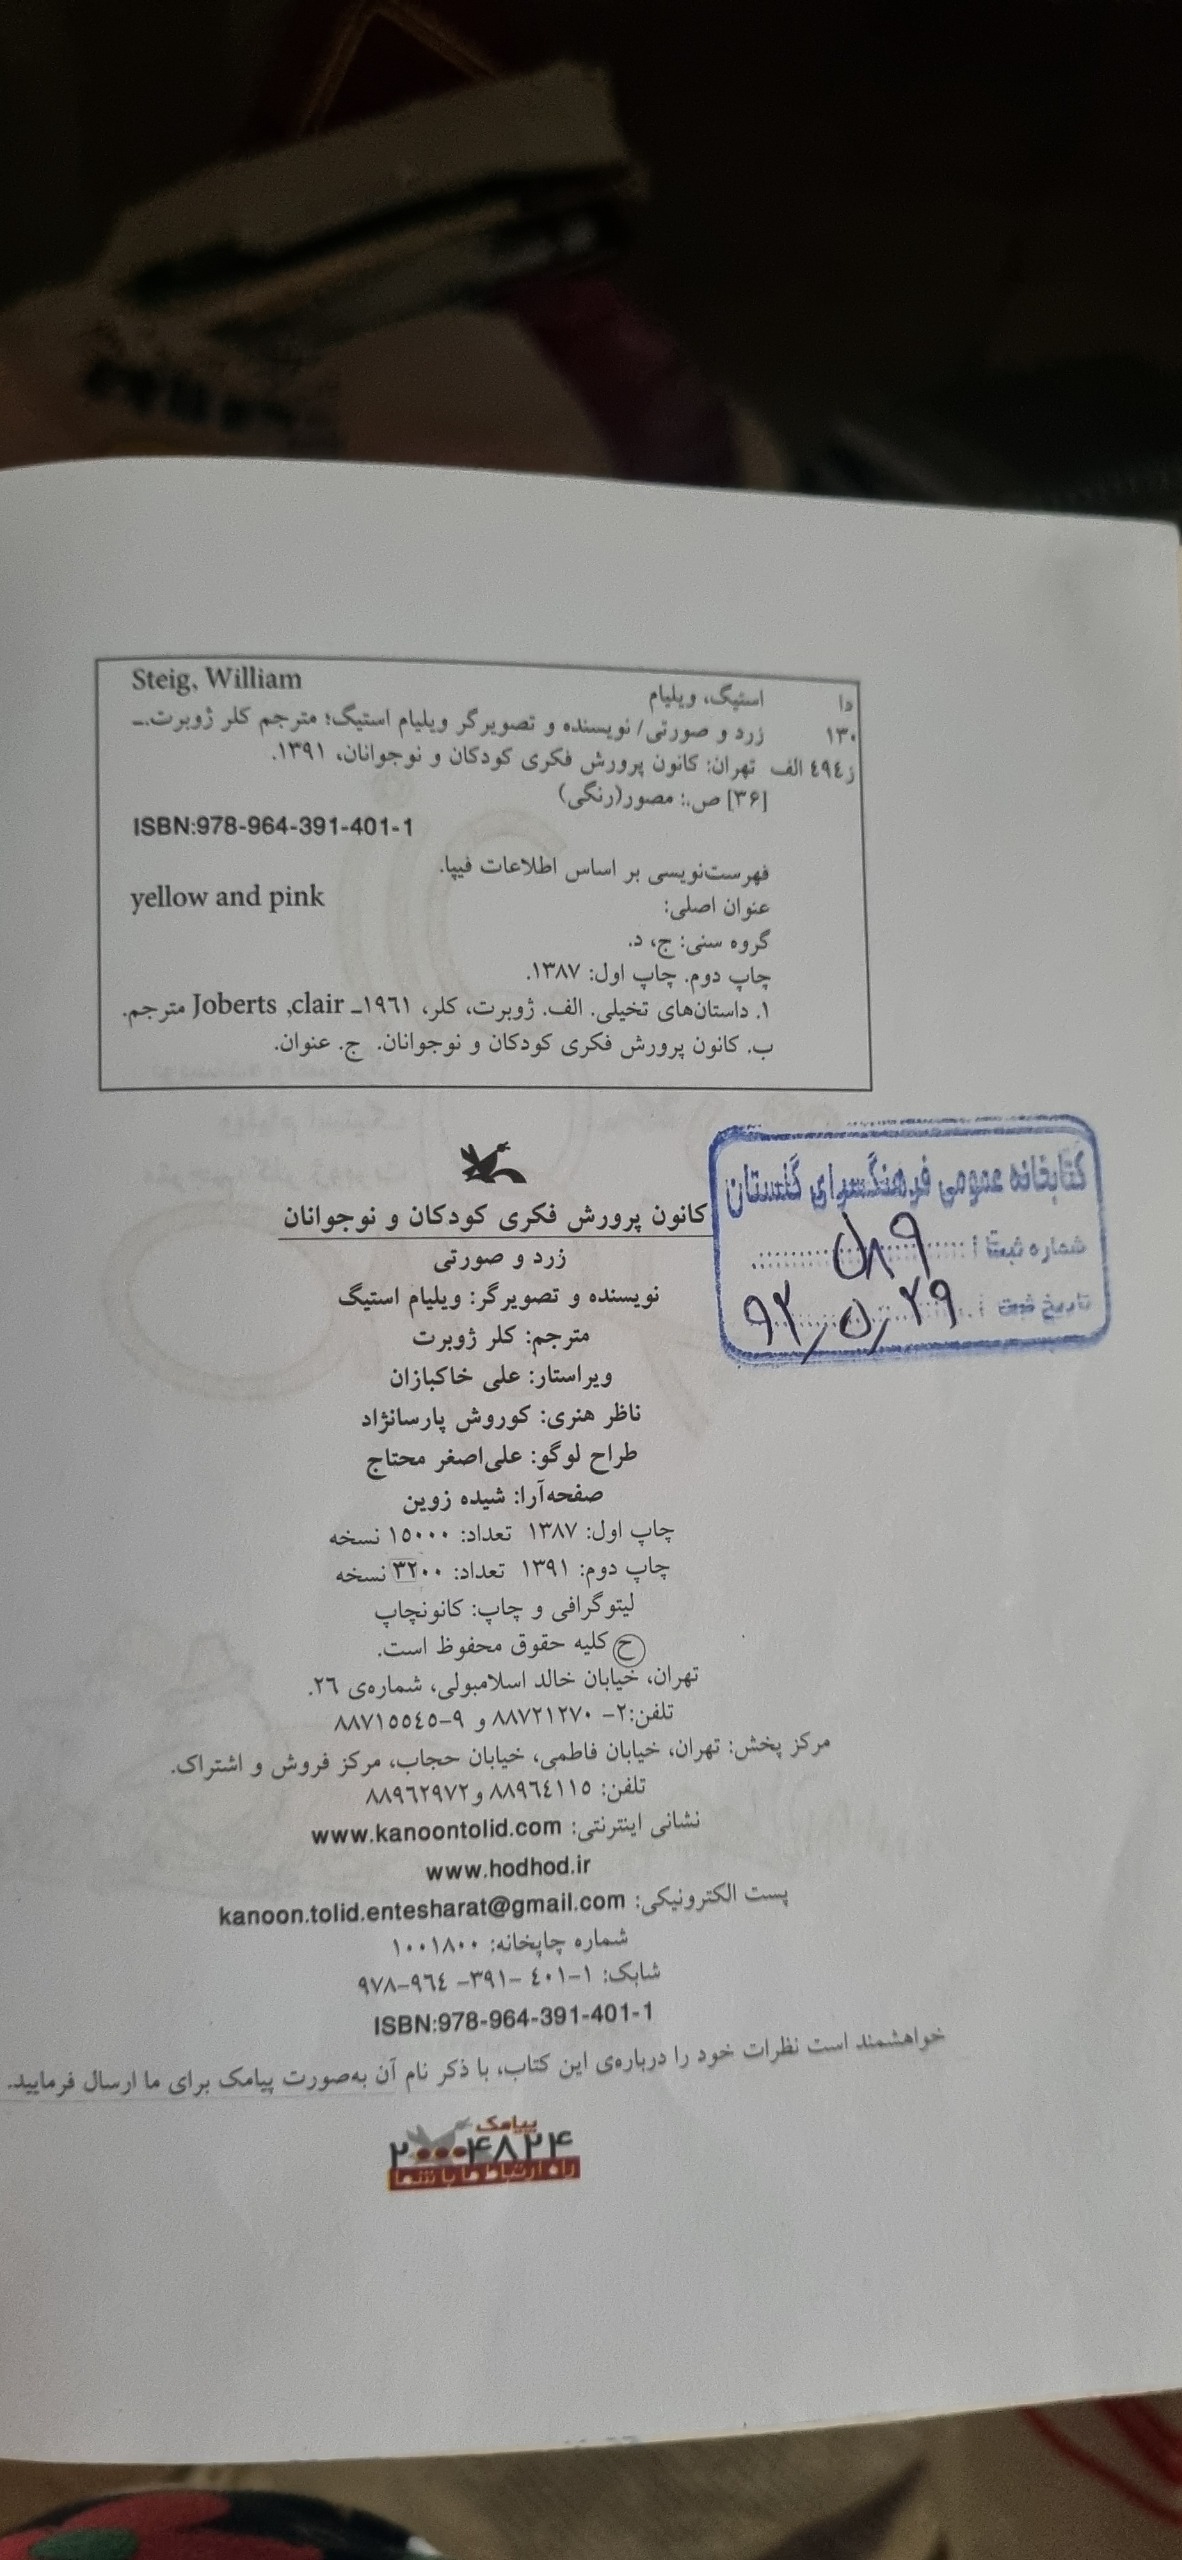 دا استیگ، ویلیام Steig, William
۱۳۰ زرد و صورتی/ نویسنده و تصویرگر ویلیام استیگ؛ مترجم کلر ژوبرت.ـ
ز٤٩٤ الف تهران: کانون پرورش فکری کودکان و نوجوانان، ۱۳۹۱.
[۳۶] ص.: مصور(رنگی)
ISBN:978-964-391-401-1
فهرست‌نویسی بر اساس اطلاعات فیپا.
عنوان اصلی: yellow and pink
گروه سنی: ج، د.
چاپ دوم. چاپ اول: ۱۳۸۷.
۱. داستان‌های تخیلی. الف. ژوبرت، کلر، ۱۹٦۱ـ Joberts ,clair مترجم.
ب. کانون پرورش فکری کودکان و نوجوانان. ج. عنوان.
کتابخانه عمومی فرهنگسرای گلستان
شماره ثبت : ۵۸۹
تاریخ ثبت : ۹۲/۵/۲۹
کانون پرورش فکری کودکان و نوجوانان
زرد و صورتی
نویسنده و تصویرگر: ویلیام استیگ
مترجم: کلر ژوبرت
ویراستار: علی خاکبازان
ناظر هنری: کوروش پارسانژاد
طراح لوگو: علی‌اصغر محتاج
صفحه‌آرا: شیده زوین
چاپ اول: ۱۳۸۷ تعداد: ۱۵۰۰۰ نسخه
چاپ دوم: ۱۳۹۱ تعداد: ۳۲۰۰ نسخه
لیتوگرافی و چاپ: کانونچاپ
ح کلیه حقوق محفوظ است.
تهران، خیابان خالد اسلامبولی، شماره‌ی ۲٦.
تلفن:۲- ۸۸۷۲۱۲۷۰ و ۹-۸۸۷۱۵۵٤۵
مرکز پخش: تهران، خیابان فاطمی، خیابان حجاب، مرکز فروش و اشتراک.
تلفن: ۸۸۹٦٤۱۱۵ و ۸۸۹٦۲۹۷۲
نشانی اینترنتی: www.kanoontolid.com
www.hodhod.ir
پست الکترونیکی: kanoon.tolid.entesharat@gmail.com
شماره چاپخانه: ۱۰۰۱۸۰۰
شابک: ۱-٤۰۱ -۳۹۱- ۹٦٤-۹۷۸
ISBN:978-964-391-401-1
خواهشمند است نظرات خود را درباره‌ی این کتاب، با ذکر نام آن به‌صورت پیامک برای ما ارسال فرمایید.
پیامک
۲۰۰۰۴۸۲۴
راه ارتباط ما با شما